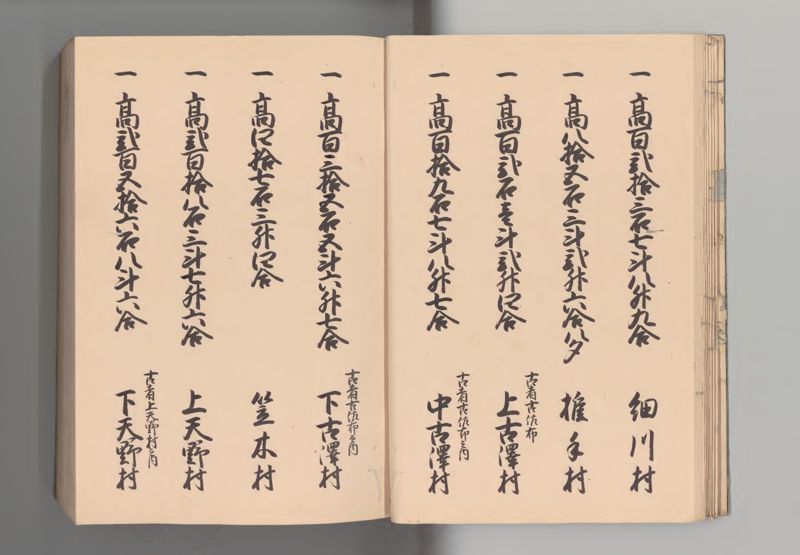 一 高百弐拾三石七斗八升九合 細川村
一 高八拾五石三斗弐升六合八夕 椎手村
一 高百弐石壱斗弐升四合 古者古佐布 上古澤村
一 高百拾九石七斗八升七合 古者古佐布之内 中古澤村
一 高百三拾五石五斗六升七合 古者古佐布之内 下古澤村
一 高四拾七石三升四合 笠木村
一 高弐百拾八石三斗七升六合 上天野村
一 高弐百五拾六石八斗六合 古者上天野村之内 下天野村